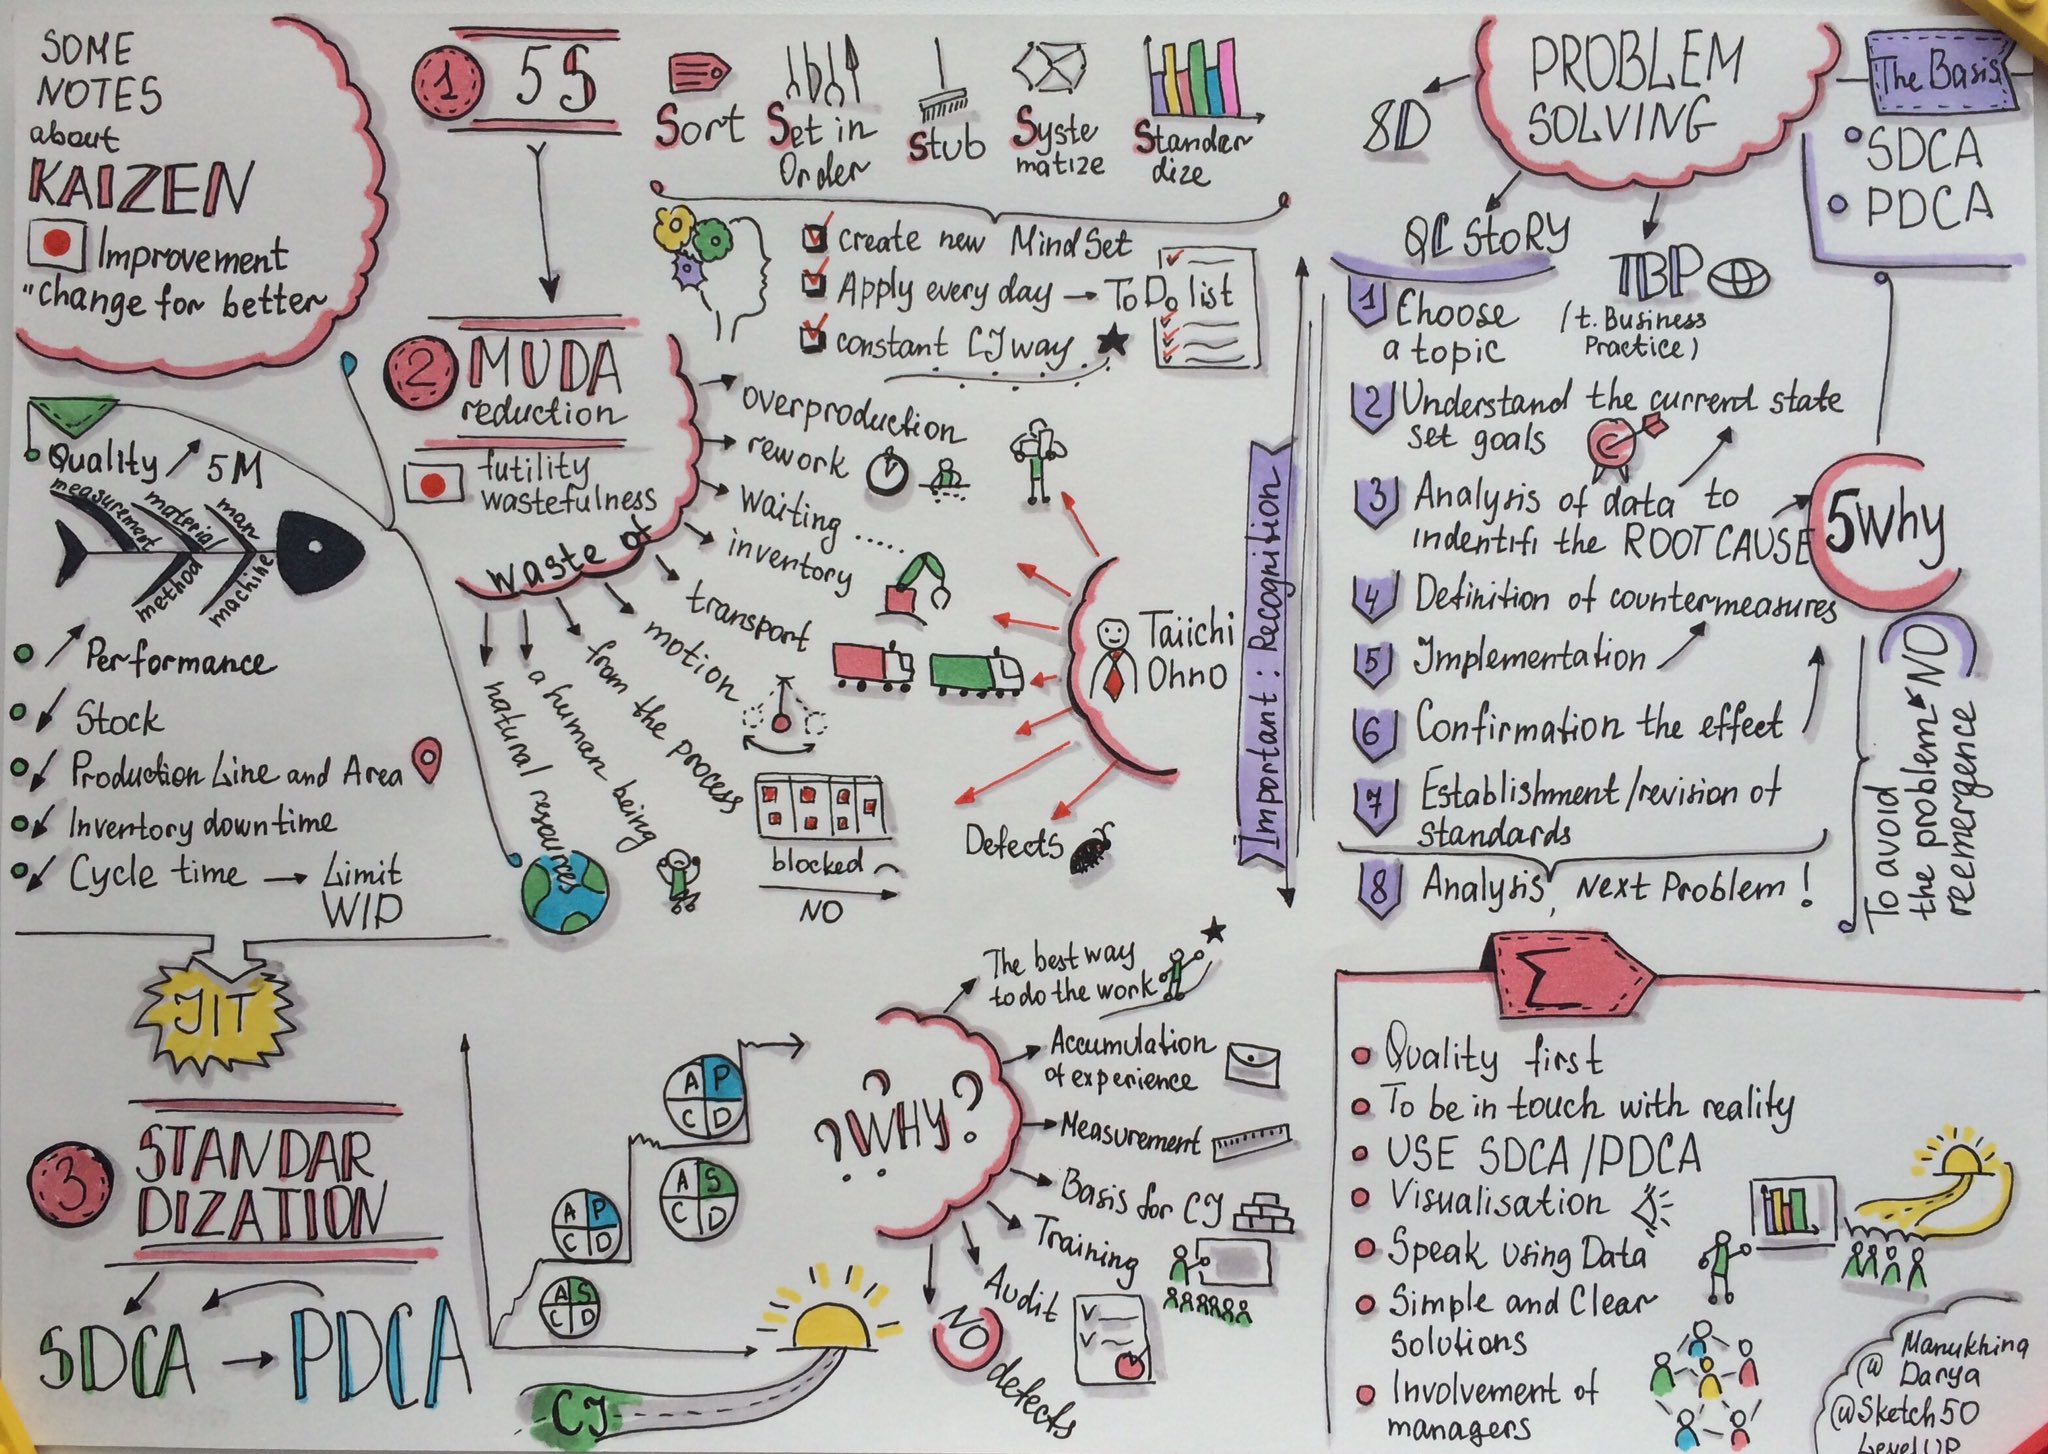 SOME
NOTES
about
KAIZEN
Improvement
"change for better
1
5S
Sort
Set in
Order
Stub
Syste
matize
Standar
dize
create new MindSet
Apply every day → To Do list
constant CJ way
2
MUDA
reduction
futility
wastefulness
waste of
overproduction
rework
waiting ......
inventory
transport
motion
from the process
a human being
natural resources
blocked
NO
Defects
Taiichi
Ohno
Important: Recognition
Quality
5M
measurement
material
man
method
machine
Performance
Stock
Production Line and Area
Inventory downtime
Cycle time → Limit
WIP
JIT
3
STANDAR
DIZATION
SDCA → PDCA
A P
C D
A S
C D
A P
C D
A S
C D
CJ
?WHY?
The best way
to do the work
Accumulation
of experience
Measurement
Basis for CJ
Training
Audit
NO
defects
PROBLEM
SOLVING
The Basis
SDCA
PDCA
8D
QC STORY
TBP
/t. Business
Practice)
1 Choose
a topic
2 Understand the current state
set goals
3 Analysis of data to
indentifi the ROOT CAUSE
5Why
4 Definition of countermeasures
5 Implementation
6 Confirmation the effect
7 Establishment/revision of
standards
8 Analysis, Next Problem!
NO
To avoid
the problem
reemergence
Σ
Quality first
To be in touch with reality
USE SDCA/PDCA
Visualisation
Speak using Data
Simple and Clear
solutions
Involvement of
managers
Manukhina
@ Darya
@Sketch50
LevelUP